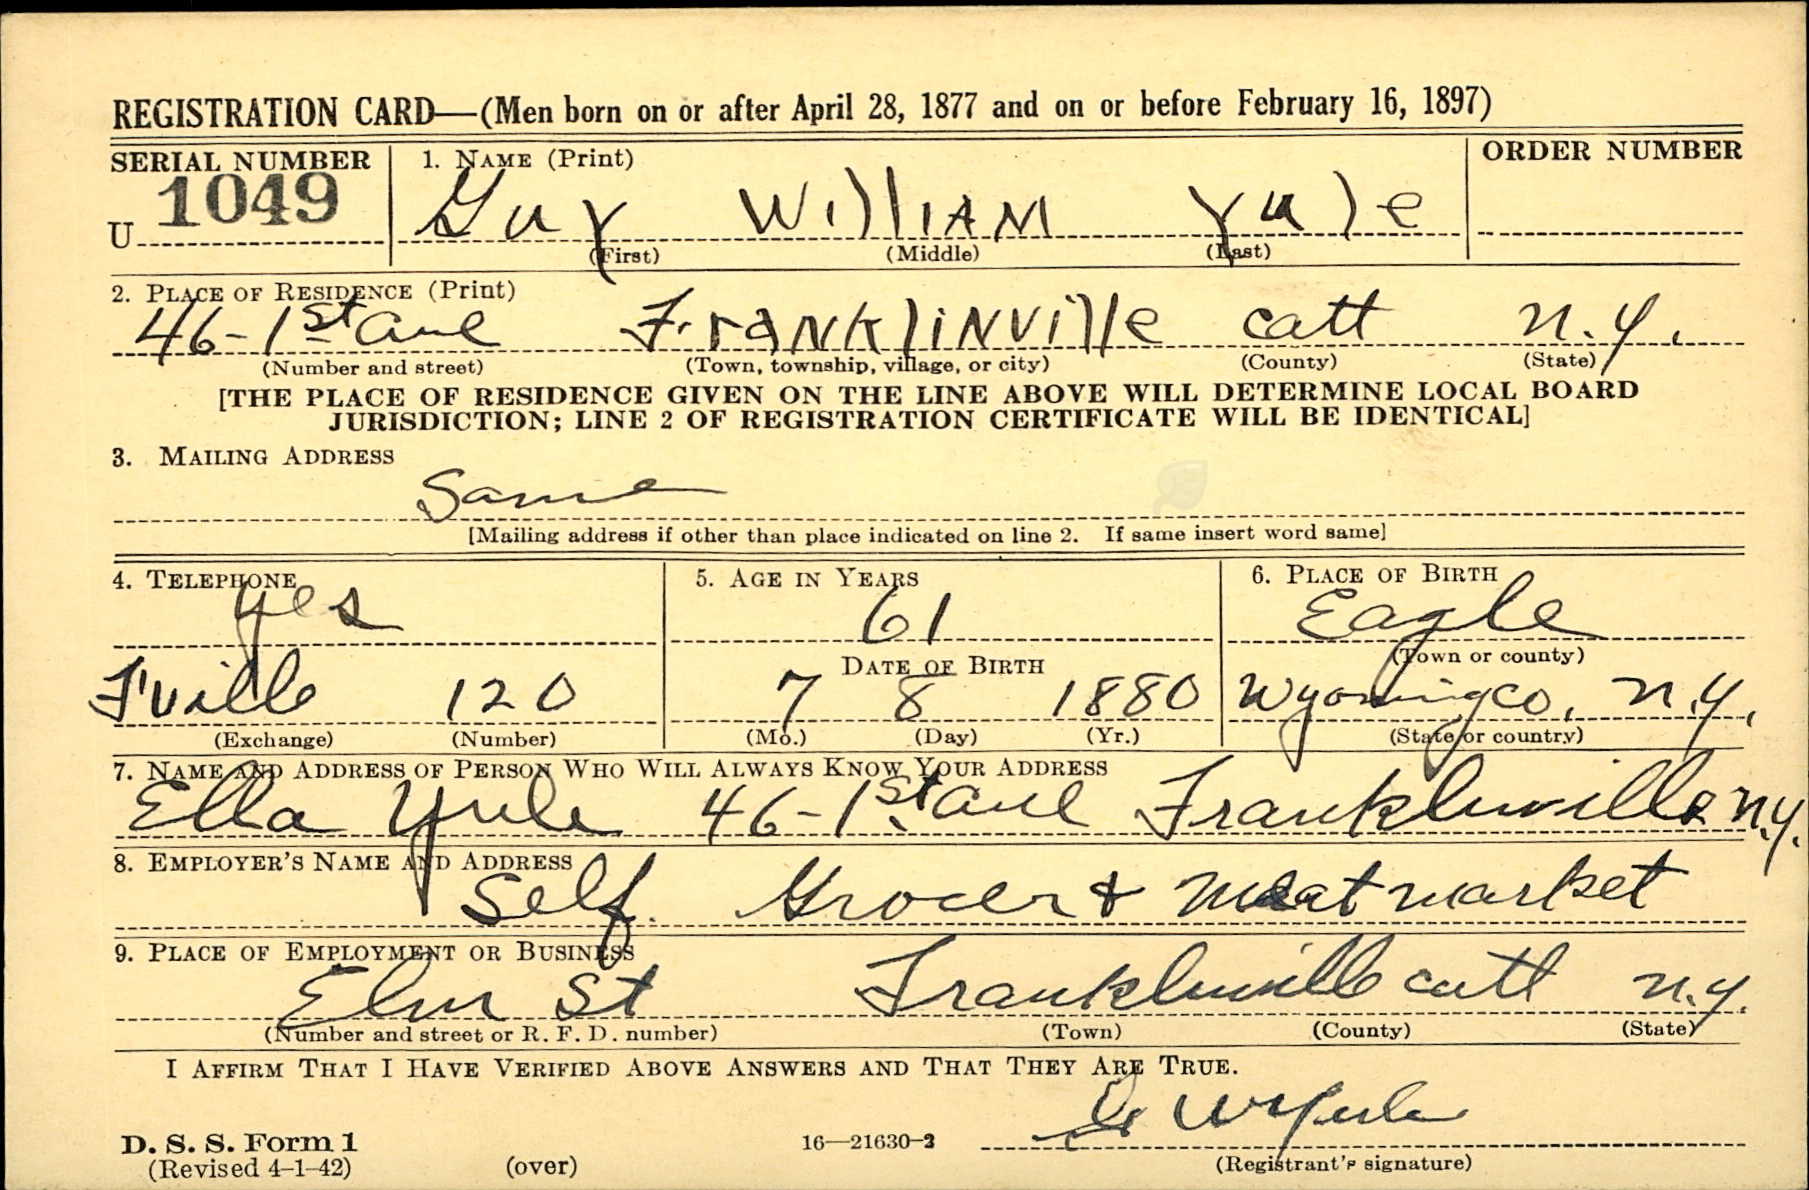 REGISTRATION CARD—(Men born on or after April 28, 1877 and on or before February 16, 1897)
SERIAL NUMBER 1. NAME (Print) ORDER NUMBER
U 1049 Guy William Yule
(First) (Middle) (Last)
2. PLACE OF RESIDENCE (Print)
46-1st ave Franklinville Catt N.Y.
(Number and street) (Town, township, village, or city) (County) (State)
[THE PLACE OF RESIDENCE GIVEN ON THE LINE ABOVE WILL DETERMINE LOCAL BOARD
JURISDICTION; LINE 2 OF REGISTRATION CERTIFICATE WILL BE IDENTICAL]
3. MAILING ADDRESS
Same
[Mailing address if other than place indicated on line 2. If same insert word same]
4. TELEPHONE 5. AGE IN YEARS 6. PLACE OF BIRTH
yes 61 Eagle
DATE OF BIRTH (Town or county)
F'ville 120 7 8 1880 Wyoming Co, N.Y.
(Exchange) (Number) (Mo.) (Day) (Yr.) (State or country)
7. NAME AND ADDRESS OF PERSON WHO WILL ALWAYS KNOW YOUR ADDRESS
Ella Yule 46-1st ave Franklinville N.Y.
8. EMPLOYER'S NAME AND ADDRESS
Self. Grocer & Meat market
9. PLACE OF EMPLOYMENT OR BUSINESS
Elm St Franklinville Catt N.Y.
(Number and street or R. F. D. number) (Town) (County) (State)
I AFFIRM THAT I HAVE VERIFIED ABOVE ANSWERS AND THAT THEY ARE TRUE.
G W Yule
D. S. S. Form 1 16—21630-2
(Revised 4-1-42) (over) (Registrant's signature)